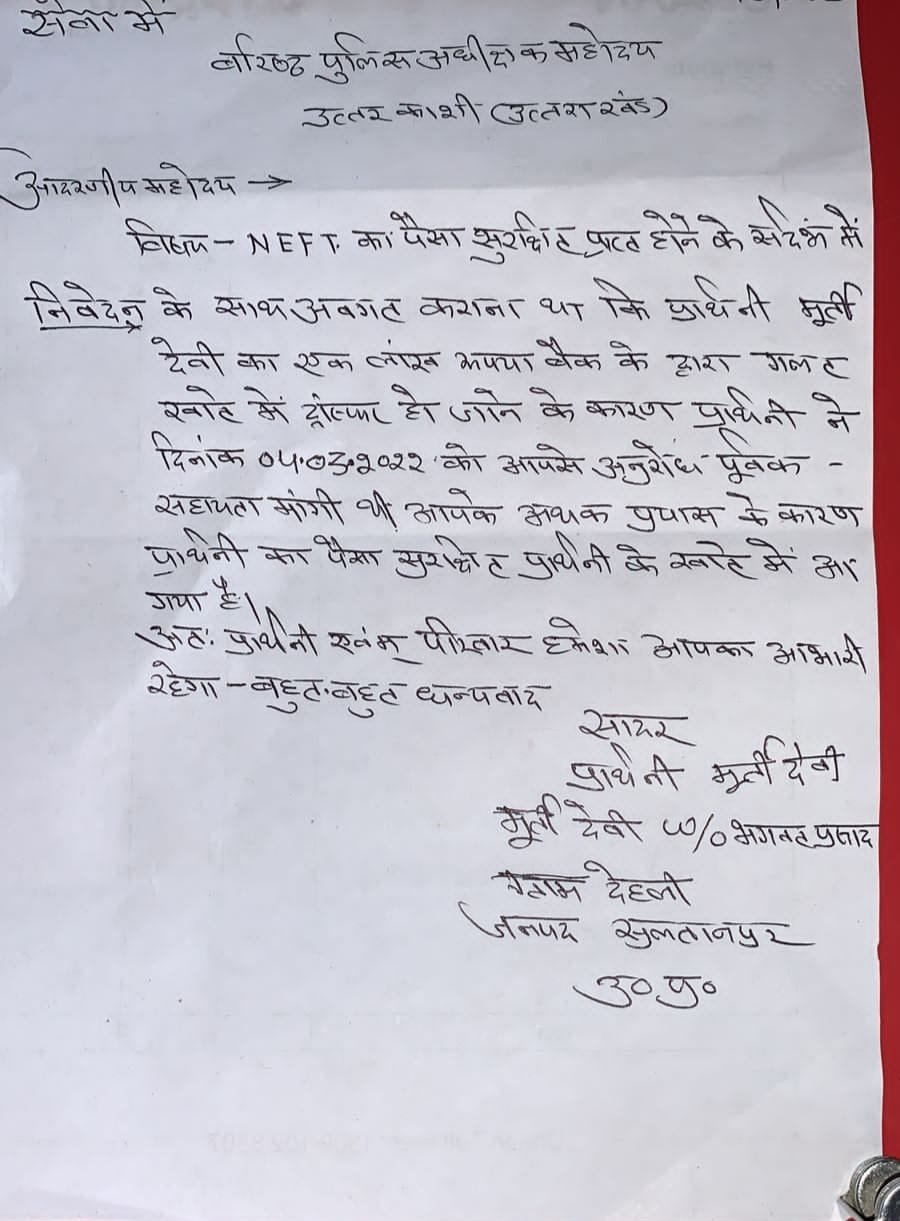 सेवा में
वरिष्ठ पुलिस अधीक्षक महोदय
उत्तर काशी (उत्तराखंड)
आदरणीय महोदय →
विषय - NEFT. का पैसा सुरक्षित प्राप्त होने के संदर्भ में
निवेदन के साथ अवगत कराना था कि प्रार्थनी मूर्ती
देवी का एक लाख रूपया बैंक के द्वारा गलत
खाते में ट्रांस्फर हो जाने के कारण प्रार्थनी ने
दिनांक 04.03.2022 को आपसे अनुरोध पूर्वक -
सहायता मांगी थी आपके अथक प्रयास के कारण
प्रार्थनी का पैसा सुरक्षित प्रार्थनी के खाते में आ
गया है।
अतः प्रार्थनी एवंम् परिवार हमेशा आपका आभारी
रहेगा - बहुत-बहुत धन्यवाद
सादर
प्रार्थनी मूर्ती देवी
मूर्ती देवी w/o भगवत प्रसाद
ग्राम देहली
जनपद सुलतानपुर
उ० प्र०